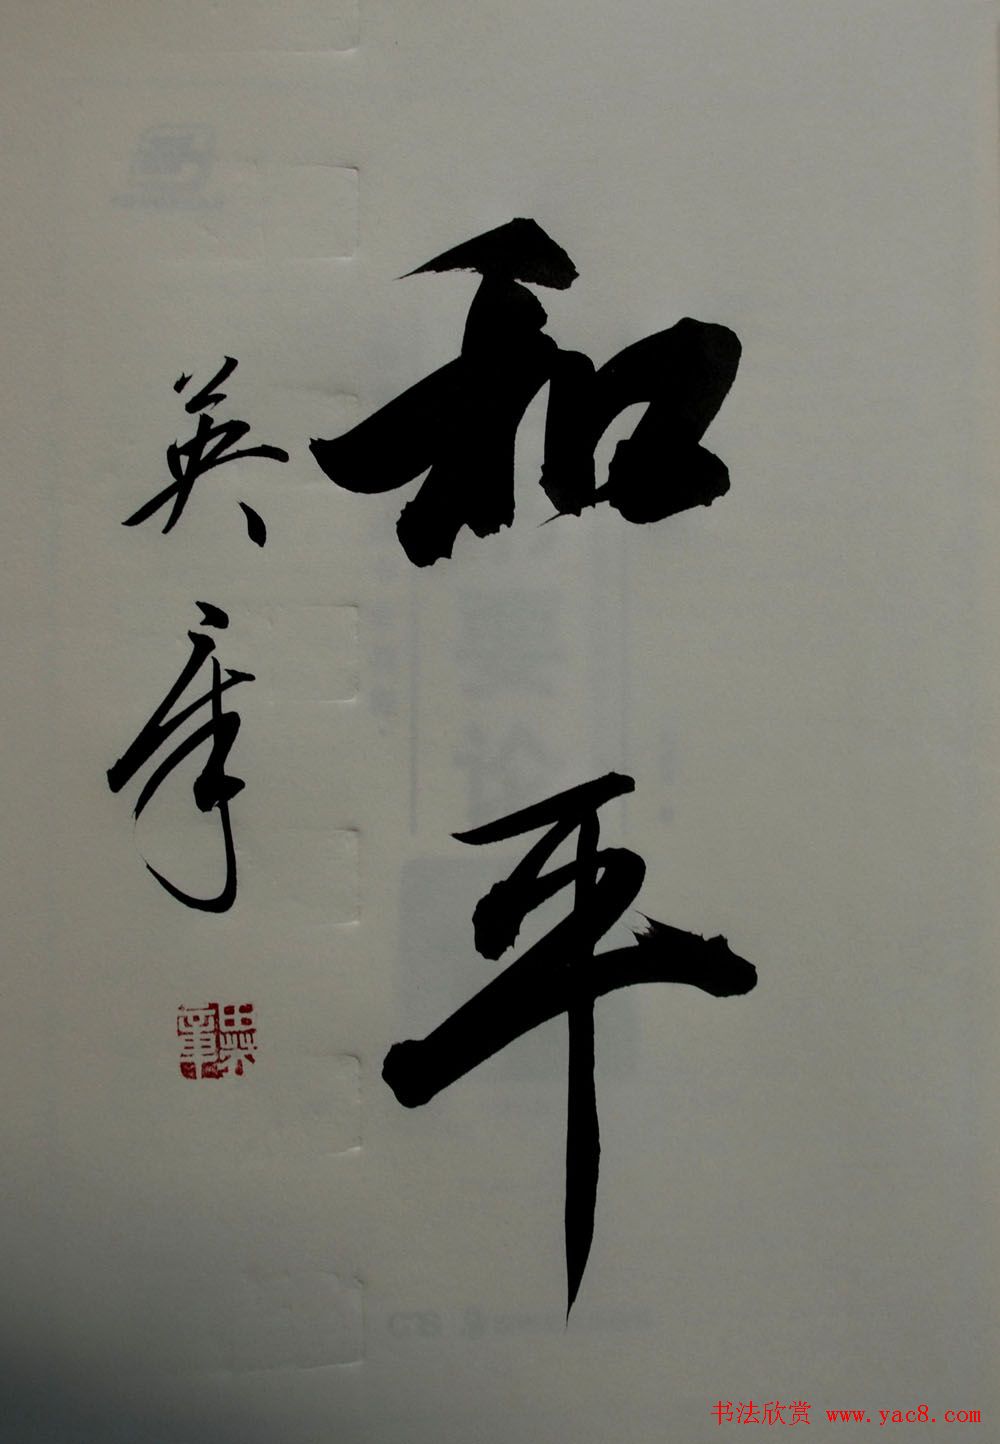 和平
英章
英章
书法欣赏 www.yac8.com